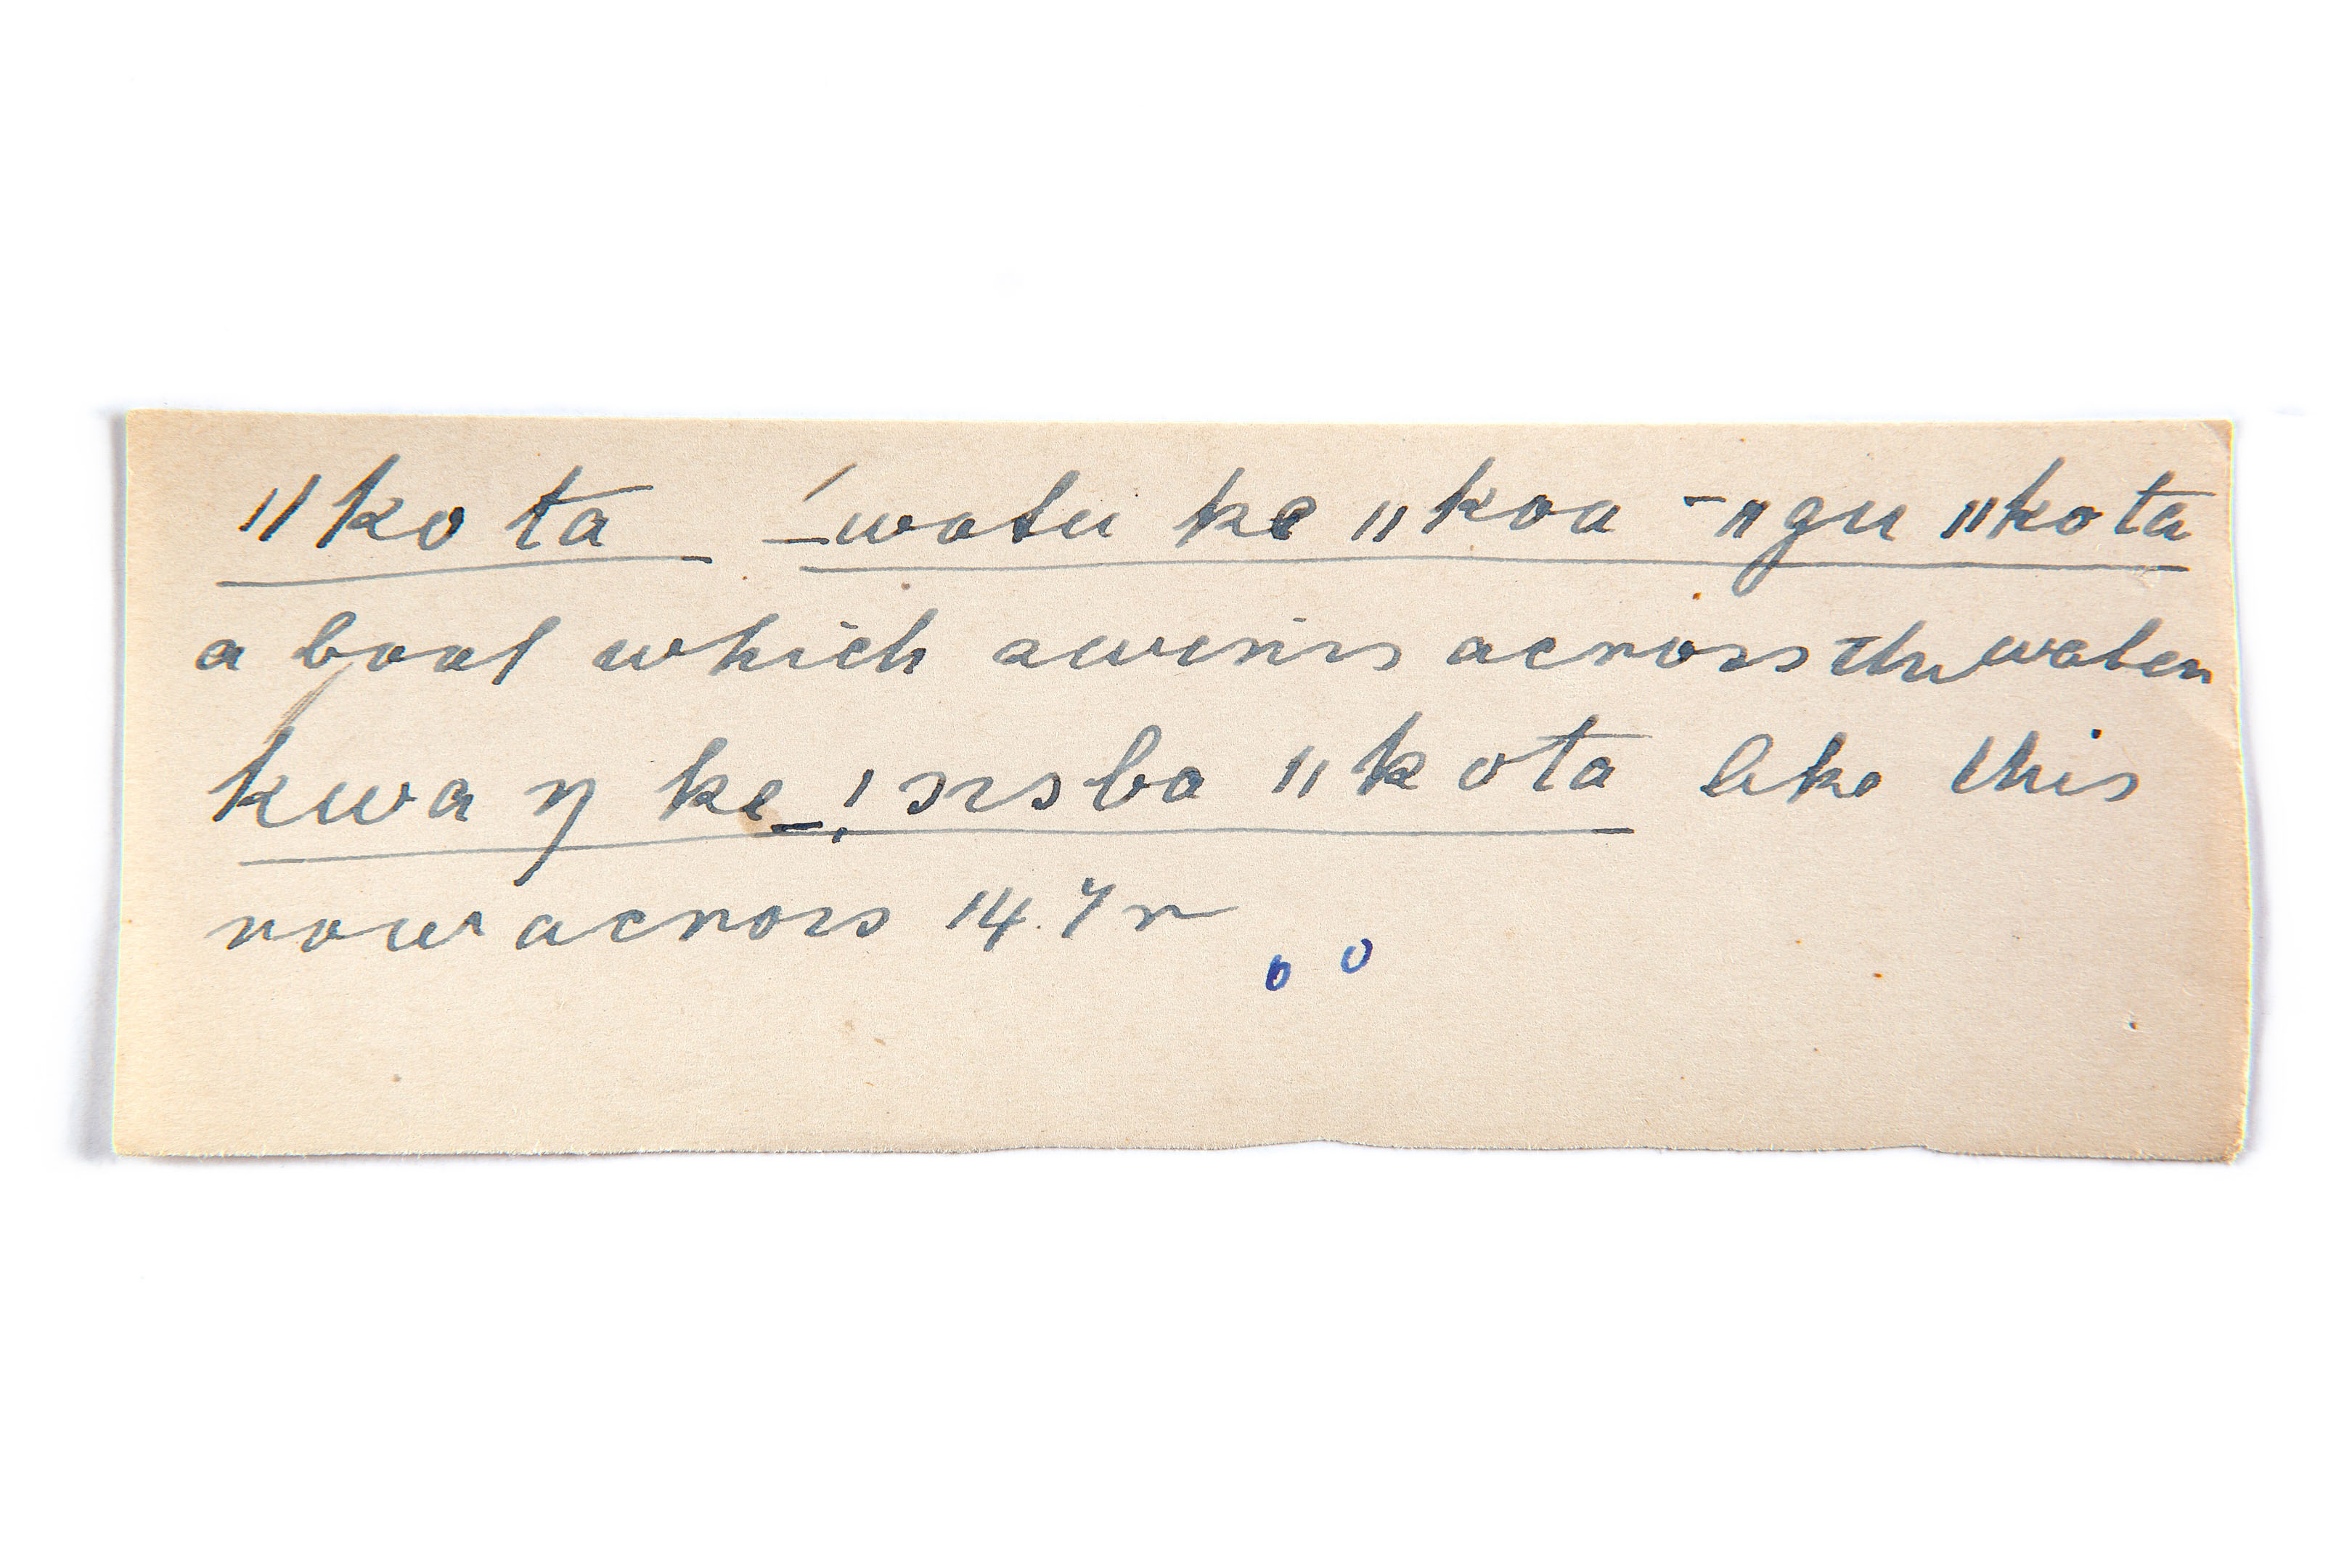 ǁkota –́watu ke ǁkoa -ŋgu ǁkota
a boat which swims across the water
kwaŋ ke ǁkota like this
row across 14.7r